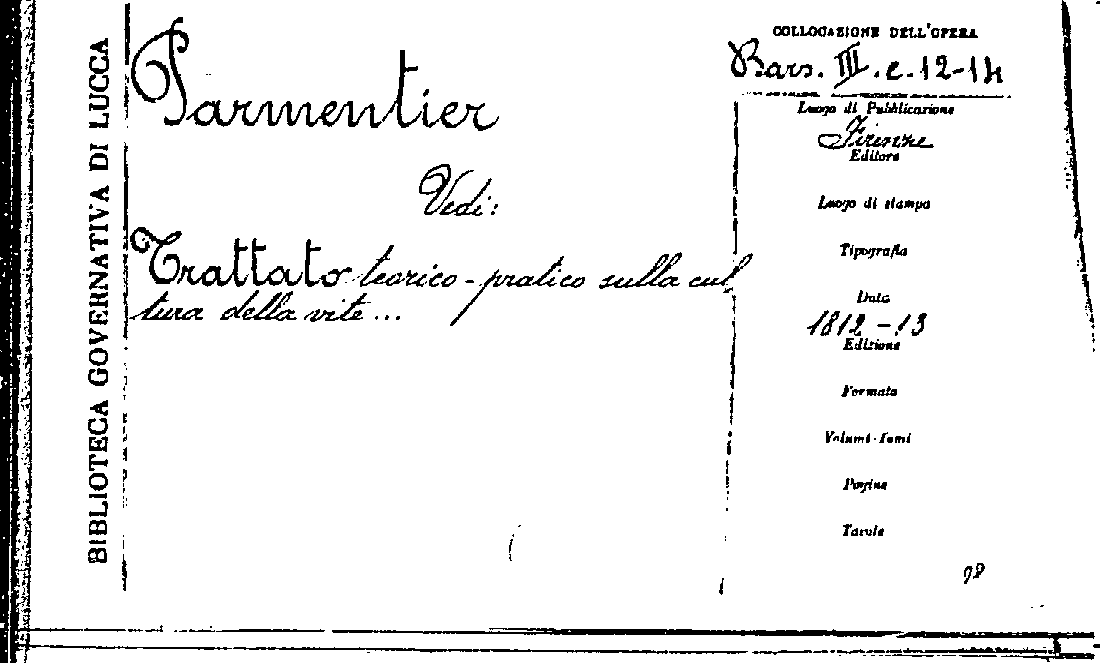 BIBLIOTECA GOVERNATIVA DI LUCCA
Parmentier
Vedi:
Trattato teorico-pratico sulla cul
tura della vite...
COLLOCAZIONE DELL'OPERA
Bars. III. c. 12-14
Luogo di Pubblicazione
Firenze
Editore
Luogo di stampa
Tipografia
Data
1812-13
Edizione
Formato
Volumi-tomi
Pagine
Tavole